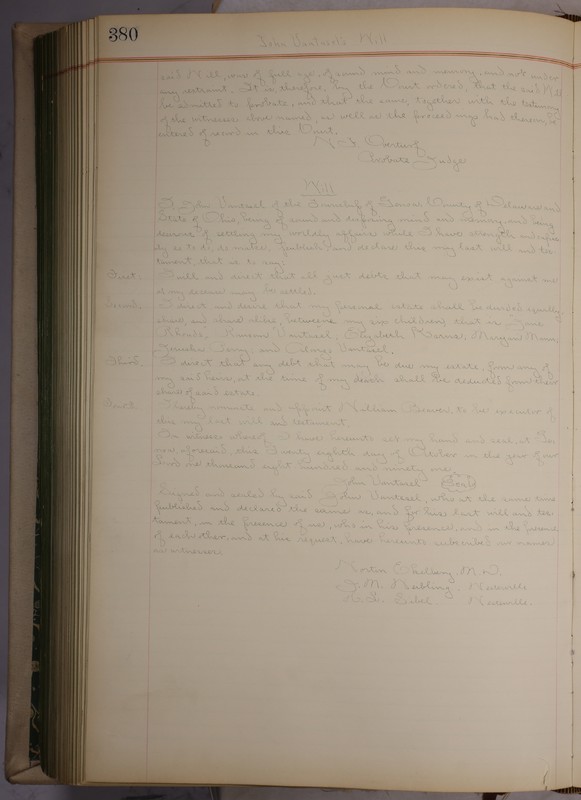 380
John Vantssel's Will
said Will, was of full age, of sound mind and memory, and not under
any restraint. It is, therefore, by the Court ordered, that the said Will
be admitted to probate, and that the same, together with the testimony
of the witnesses above named, as well as the proceedings had therein, be
entered of record in this Court.
Overturf
Probate Judge
Will
I, John Vantssel of the Township of Genoa County of Delaware and
State of Ohio, being of sound and disposing mind and memory, and being
desirous of settling my worldly affairs while I have strength and capac-
ity so to do, make, publish and declare this my last will and tes-
tament, that is to say:
First. I will and direct that all just debts that may exist against me
at my decease may be settled.
Second. I direct and devise that my personal estate shall be divided equally
share and share alike, between my six children that is Jane
Rhoads, Vantssel, Elizabeth Margaret
Perry, and Vantssel.
Third. I direct that any debt that may be due my estate, from any of
my said heirs, at the time of my death shall be deducted from their
share of said estate.
I hereby nominate and appoint William to be executor of
this my last will and testament.
In witness whereof I have hereunto set my hand and seal, at Ge-
noa, aforesaid, this Twenty eighth day of October in the year of our
Lord one thousand eight hundred and ninety
John Vantssel Seal
Signed and sealed by said John Vantssel, who at the same time
published and declared the same as, and for his last will and tes-
tament, in the presence of us, who in his presence, and in the presence
of each other, and at his request, have hereunto subscribed our names
as witnesses.
M.D.
J. M.